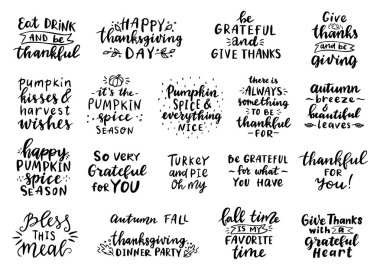 Eat DRINK
AND be
thankful
HAPPY
thanksgiving
DAY
be
GRATEFUL
and
GIVE THANKS
Give
thanks
and be
giving
pumpkin
kisses &
harvest
wishes
it's the
PUMPKIN
spice
SEASON
Pumpkin
SPICE &
everything
NICE
there is
ALWAYS
something
TO BE
thankful
FOR
autumn
breeze &
beautiful
leaves
happy
PUMPKIN
spice
SEASON
So very
Grateful
for YOU
Turkey
and Pie
Oh my
Be GRATEFUL
for what
YOU HAVE
thankful
FOR
You!
Bless
THIS
meal
Autumn FALL
thanksgiving
DINNER PARTY
fall time
IS MY
FAVORITE
time
Give Thanks
with a
Grateful
Heart